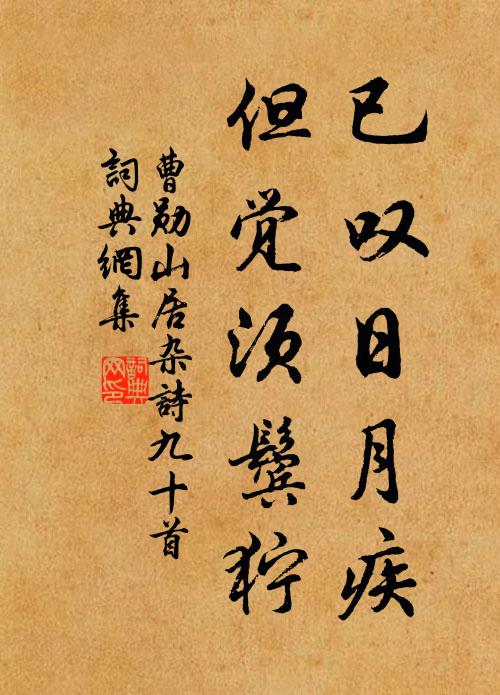 已叹日月疾
但觉须鬓狞
曹勋山居杂詩九十首
詞典網集
詞典网印